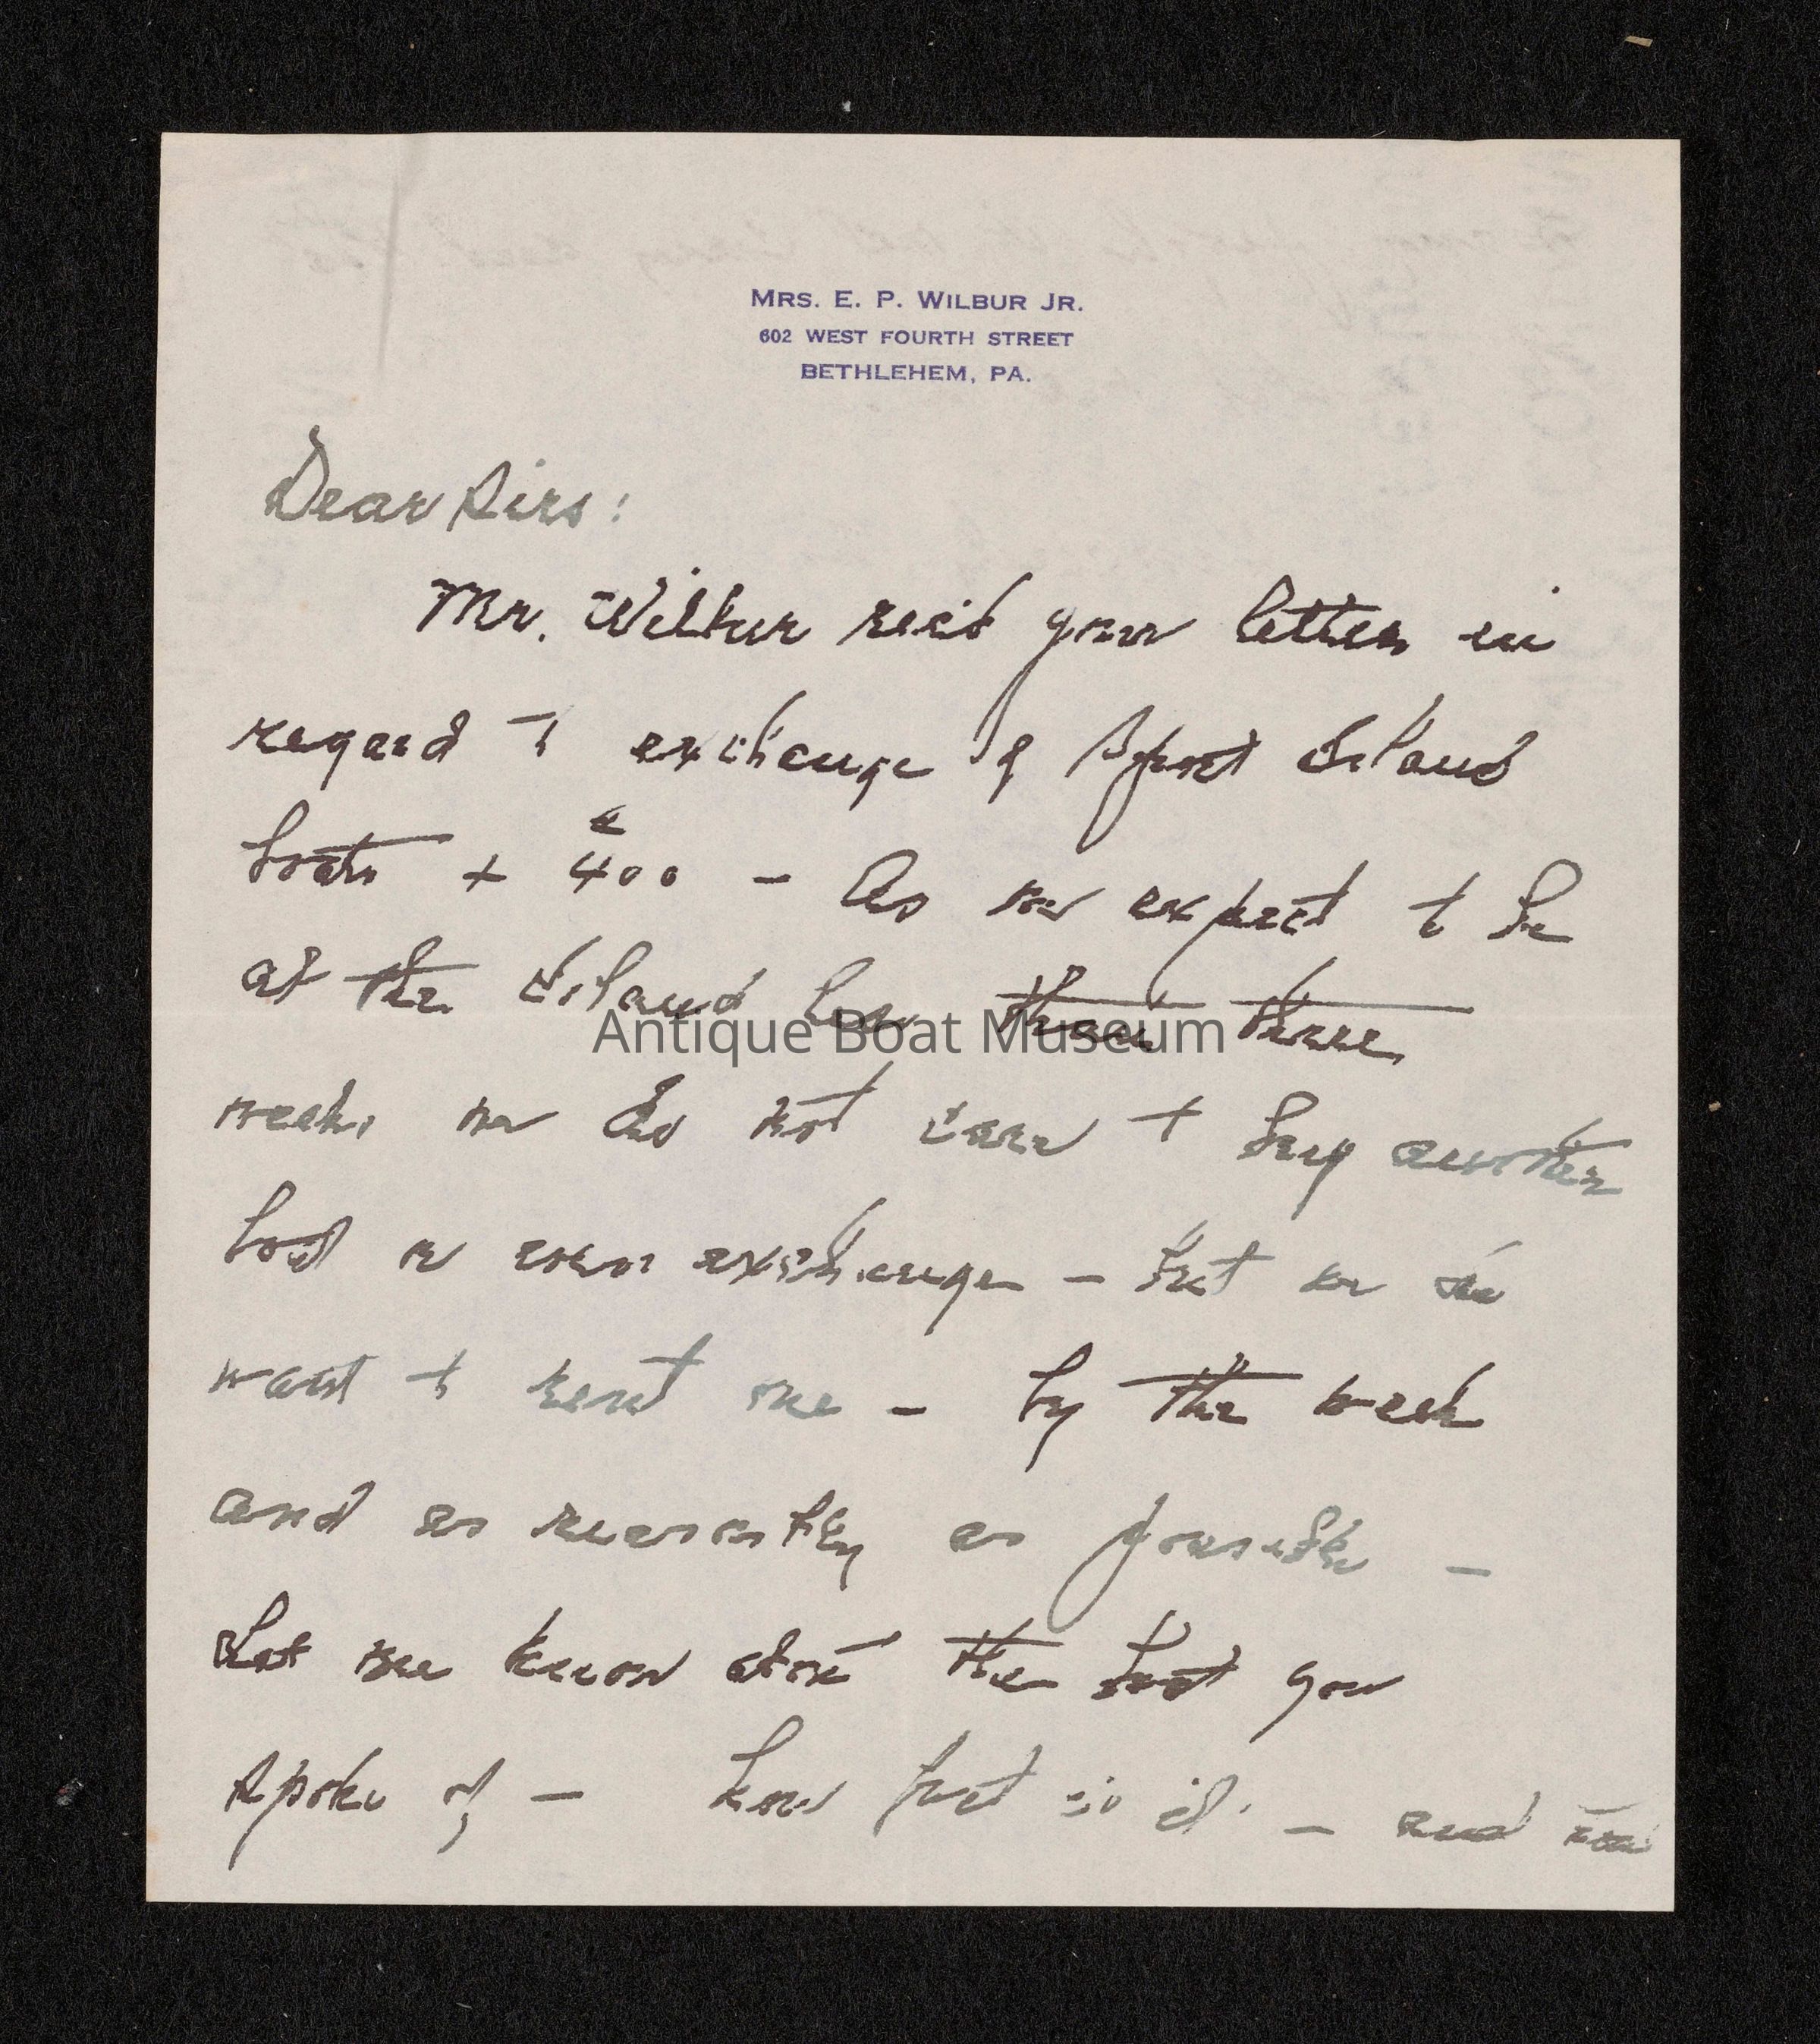 MRS. E. P. WILBUR JR.
602 WEST FOURTH STREET
BETHLEHEM, PA.
Dear Sirs:
Mr. Wilbur rec'd your letter in
regard to exchange of Sport Island
boats + 400 - As we expect to be
at the Island less than three
weeks we do not care to buy another
boat or even exchange - but we do
want to rent one - by the week
and as reasonably as possible -
Let me know about the boat you
spoke of - how fast is it - and
Antique Boat Museum